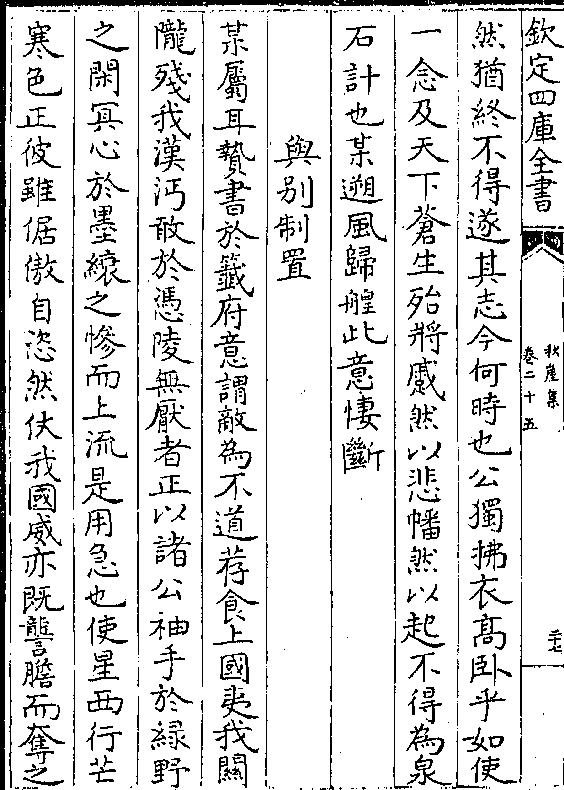 欽定四庫全書
秋崖集
卷二十五
然猶終不得遂其志今何時也公獨拂衣髙卧乎如使
一念及天下蒼生殆將戚然以悲幡然以起不得為泉
石計也某遡風歸艎此意悽斷
與别制置
某屬耳贄書於籖府意謂敵為不道荐食上國夷我關
隴殘我漢沔敢於憑陵無厭者正以諸公袖手於緑野
之閑冥心於墨縗之慘而上流是用急也使星西行芒
寒色正彼雖倨傲自恣然伏我國威亦既讋膽而奪之